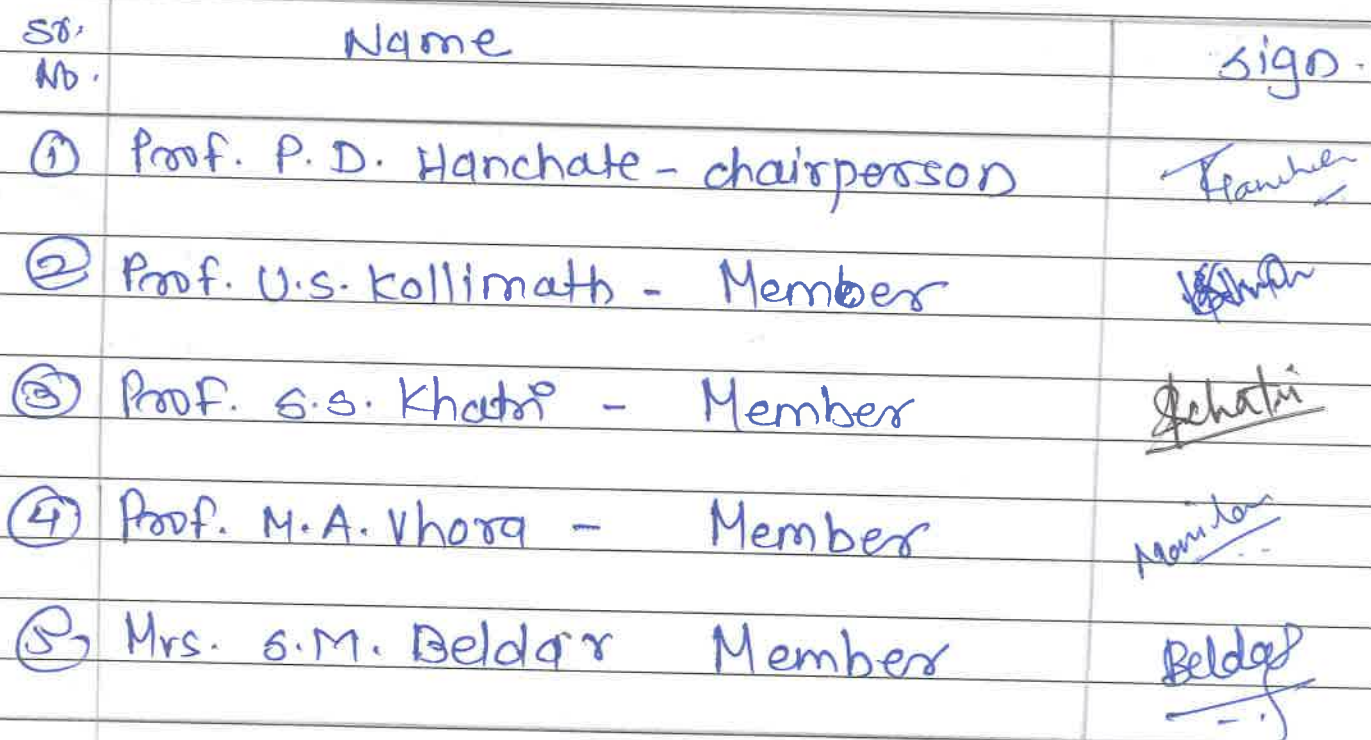 Sr. No. Name Sign.
① Prof. P. D. Hanchate - chairperson
② Prof. U.S. Kollimath - Member
③ Prof. S.S. Khatri - Member Khatri
④ Prof. M.A. Vhora - Member
⑤ Mrs. S.M. Beldar Member Beldar